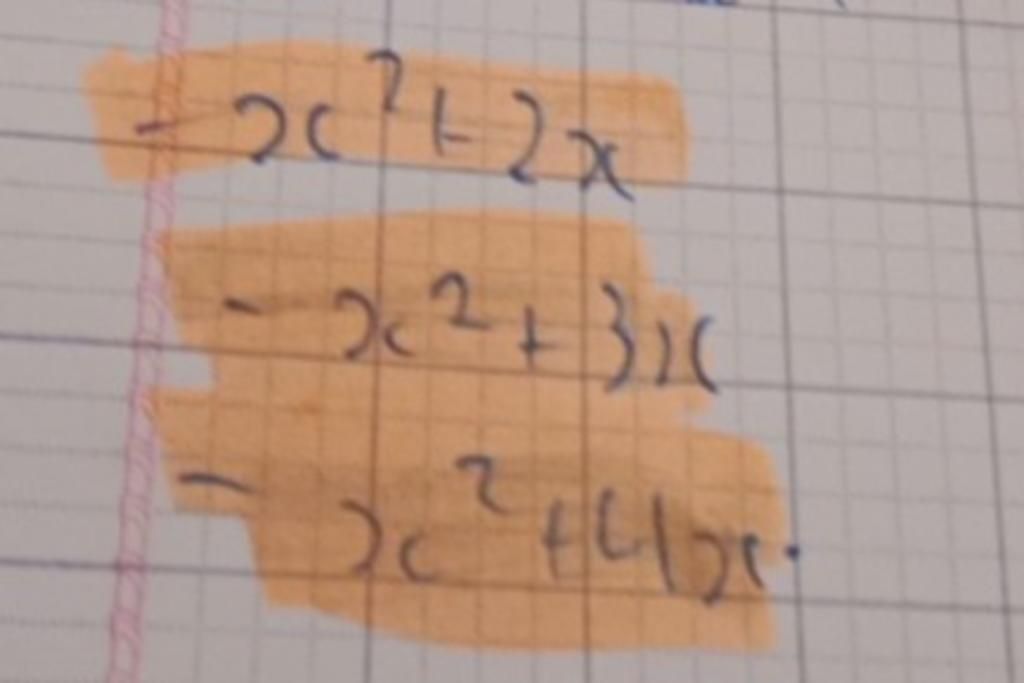 - x² + 2x
- x² + 3x
- x² + 4x.